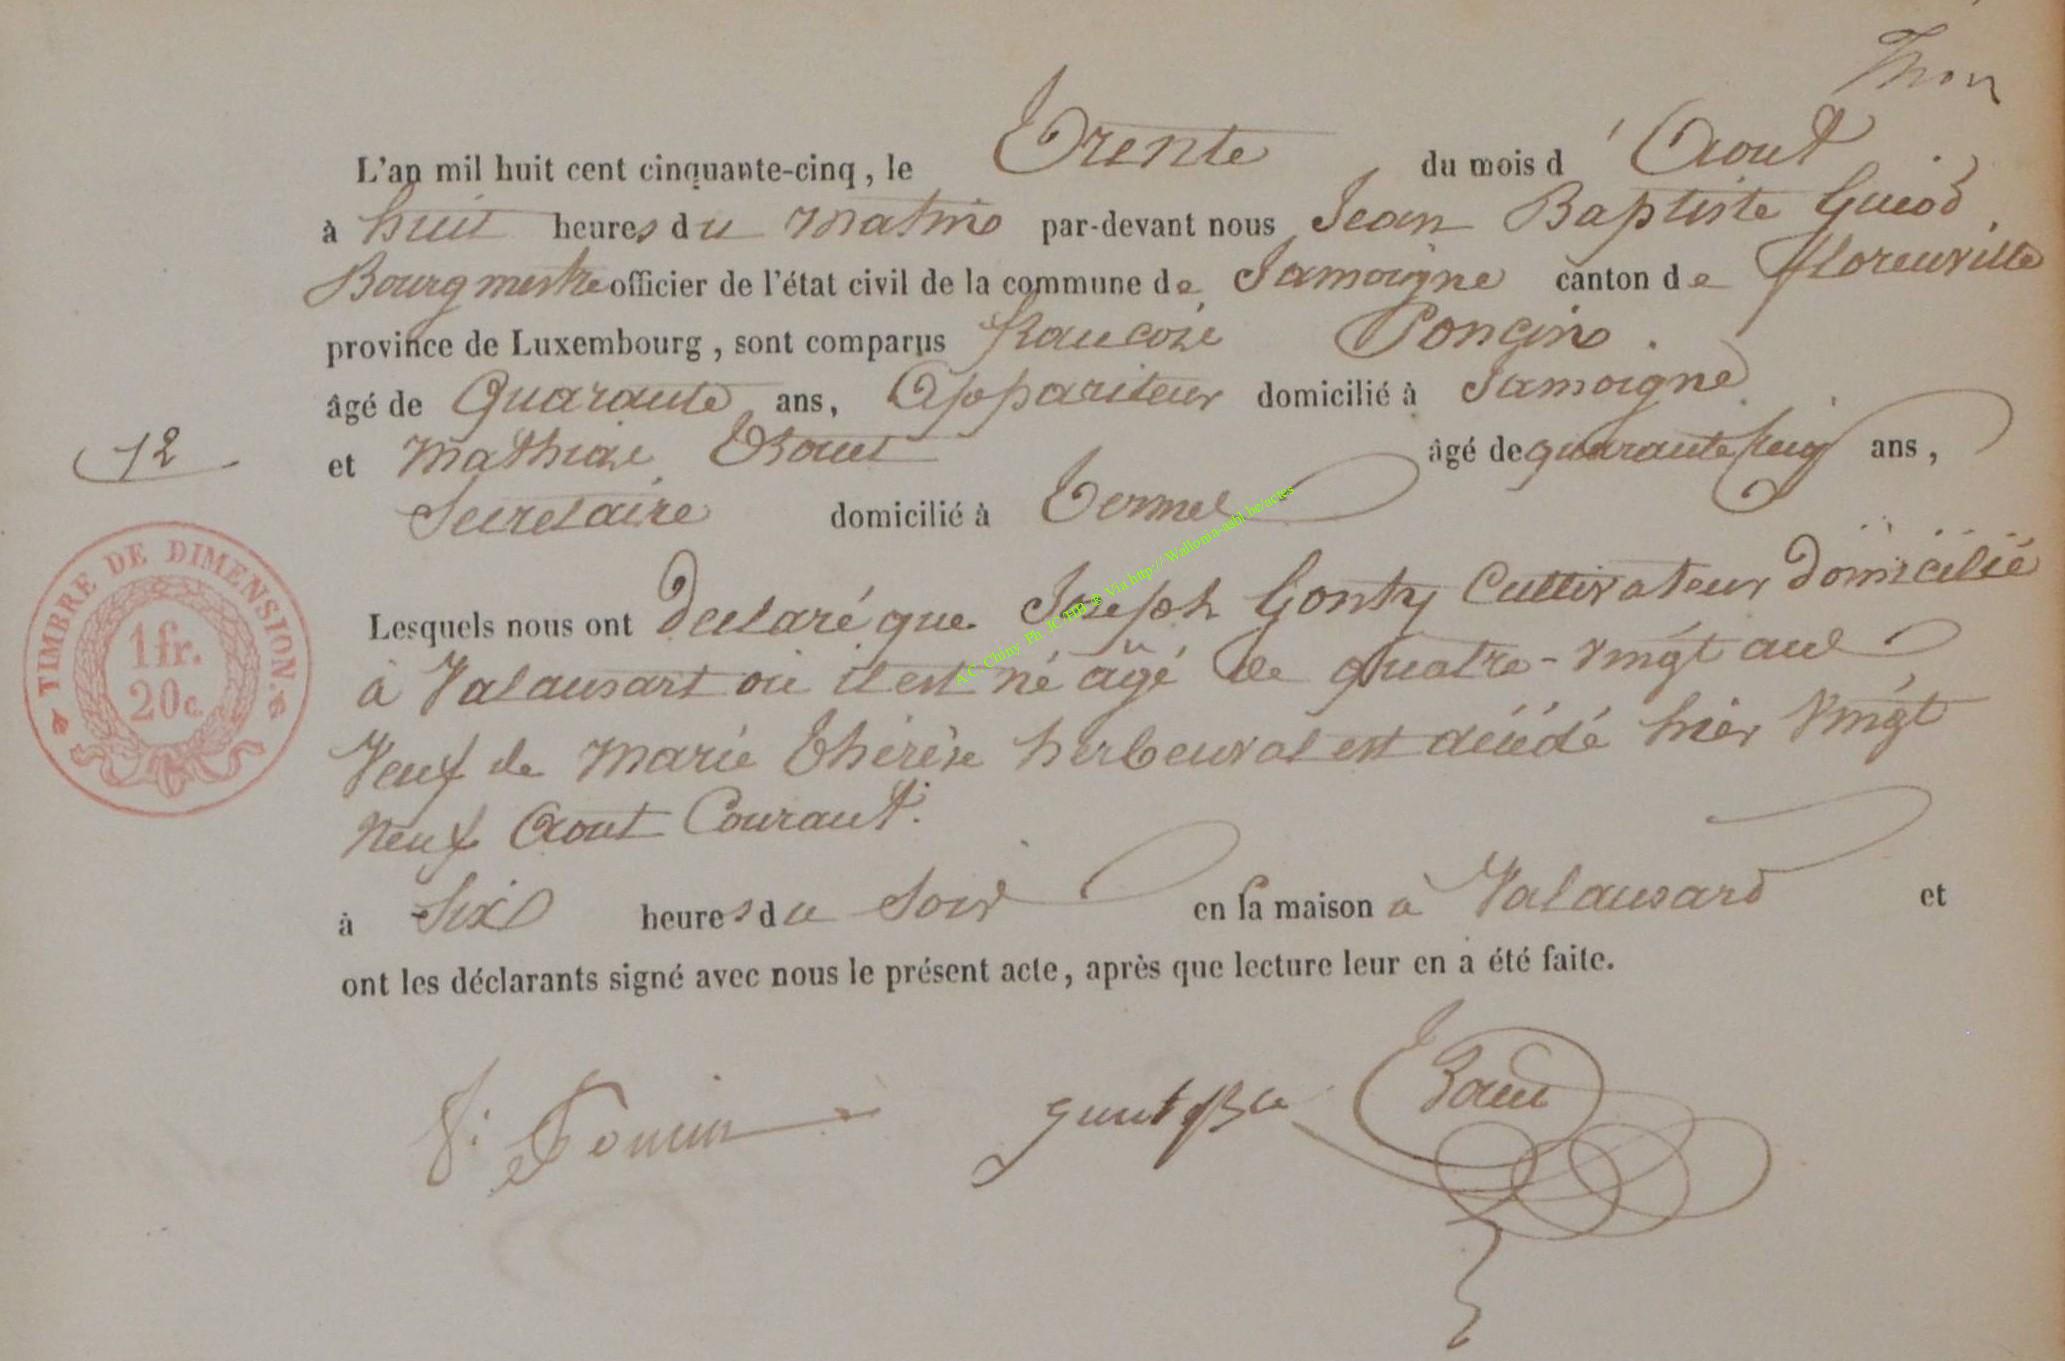 Thon
L'an mil huit cent cinquante-cinq, le Trente du mois d'Aout
à huit heures du matin par-devant nous Jean Baptiste Guiot
Bourgmestre officier de l'état civil de la commune de Jamoigne canton de florenville
province de Luxembourg, sont comparus francois Poncin.
âgé de Quarante ans, Appariteur domicilié à Jamoigne
et Mathias âgé de quarante cinq ans,
12
Secretaire domicilié à Termes
TIMBRE DE DIMENSION.
1 fr.
20c.
Lesquels nous ont declaré que Joseph Gonty Cultivateur domicilié
à Valansart où il est né âgé de quatre-vingt ans
Veuf de Marie Thérèse herbeuval est décédé hier Vingt
neuf Aout Courant.
à Six heures du Soir en sa maison à Valansard et
ont les déclarants signé avec nous le présent acte, après que lecture leur en a été faite.
f. Poncin
A C Chiny Ph JC HB © Via http://Wallonia-asbl.be/actes